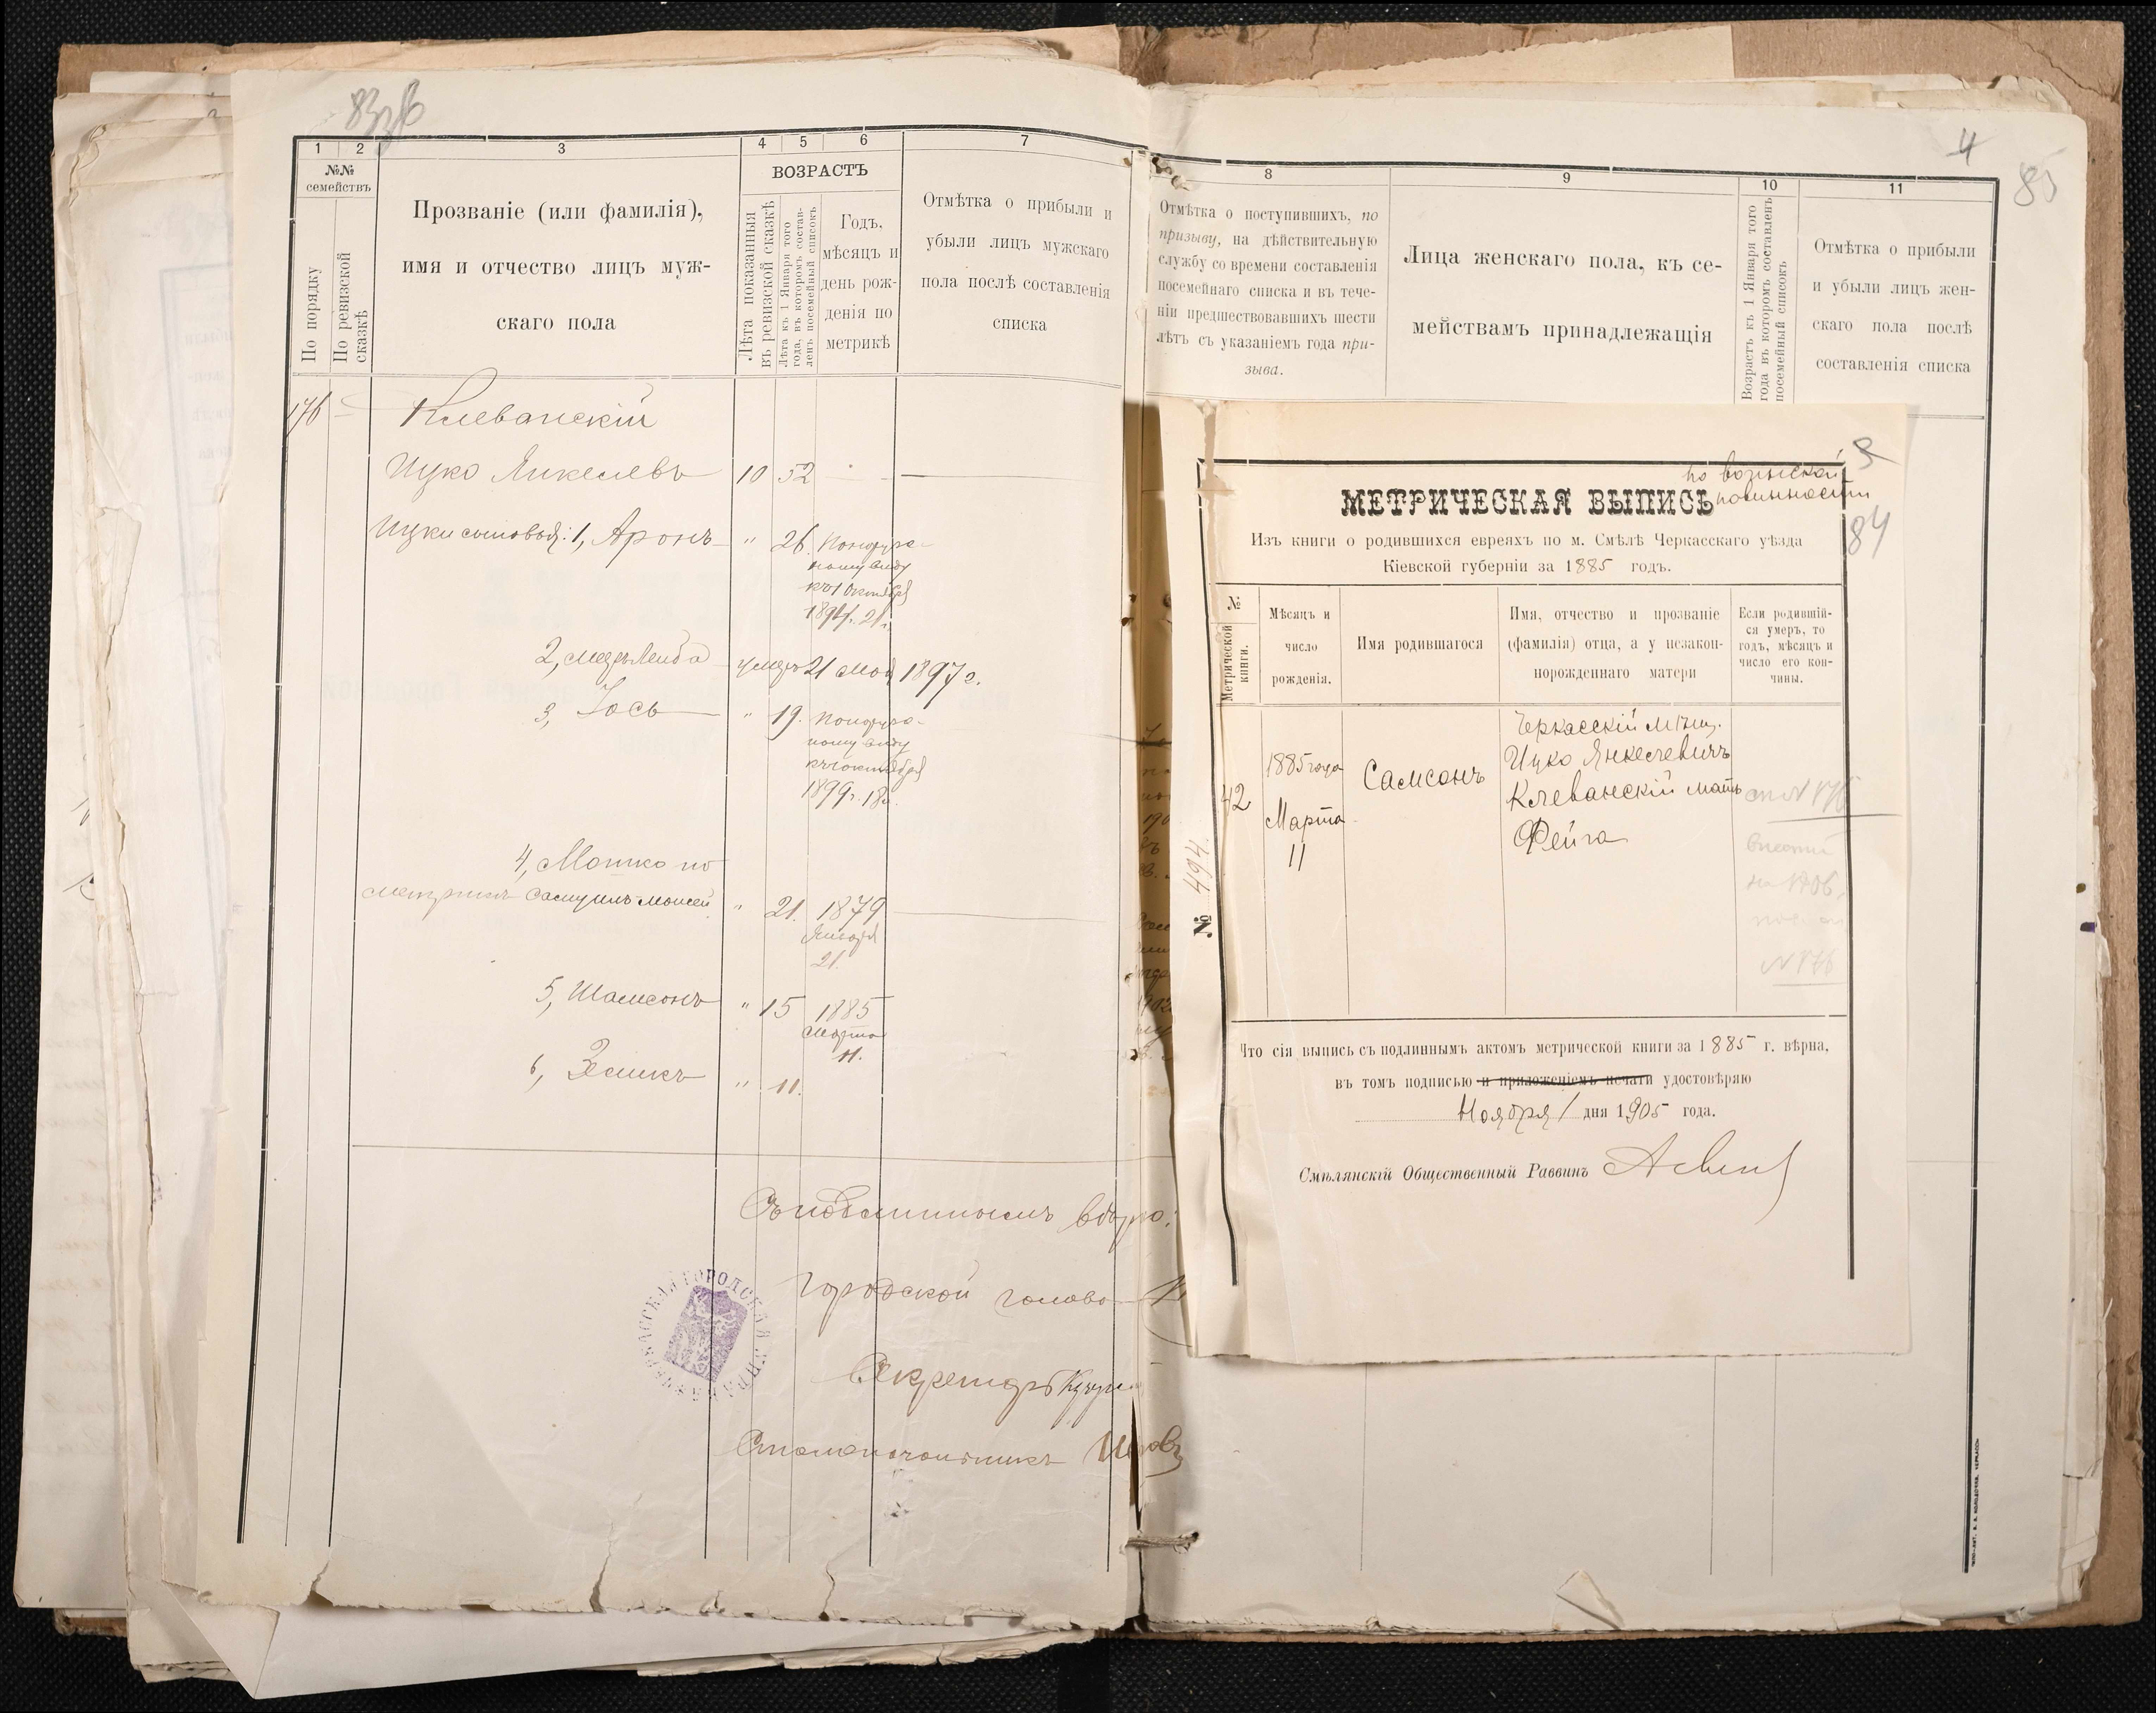 83 об
1 2 3 4 5 6 7
№№
семействъ
По порядку
По ревизской
сказкѣ
Прозваніе (или фамилія),
имя и отчество лицъ муж-
скаго пола
ВОЗРАСТЪ
Лѣта показанныя
въ ревизской сказкѣ
Лѣта къ 1 Января того
года, въ которомъ состав-
ленъ посемейный списокъ
Годъ,
мѣсяцъ и
день рож-
денія по
метрикѣ
Отмѣтка о прибыли и
убыли лицъ мужскаго
пола послѣ составленія
списка
176 — Клеванскій
Ицко Янкелевъ 10 52
Ицки сыновья: 1, Аронъ " 26.
къ 1 Октября
1894г. 21г.
2, Лейба умеръ 21 мая 1897г.
3, Іось " 19.
къ 1 октября
1899г. 18л.
4, Мошко по
метрикѣ Самуилъ Мойсей " 21. 1879
Января
21.
5, Шамсонъ " 15 1885
Марта
11.
6, Зеликъ " 11.
Съ подлиннымъ вѣрно:
Городской голова
Секретарь
Столоначальникъ
ЧЕРКАССКАЯ ГОРОДСКАЯ УПРАВА
4
85
8 9 10 11
Отмѣтка о поступившихъ, по
призыву, на дѣйствительную
службу со времени составленія
посемейнаго списка и въ тече-
ніи предшествовавшихъ шести
лѣтъ съ указаніемъ года при-
зыва.
Лица женскаго пола, къ се-
мействамъ принадлежащія
Возрастъ къ 1 Января того
года въ которомъ составленъ
посемейный списокъ
Отмѣтка о прибыли
и убыли лицъ жен-
скаго пола послѣ
составленія списка
по воинской
повинности
84
МЕТРИЧЕСКАЯ ВЫПИСЬ
Изъ книги о родившихся евреяхъ по м. Смѣлѣ Черкасскаго уѣзда
Кіевской губерніи за 1885 годъ.
№
Метрической
книги.
Мѣсяцъ и
число
рожденія.
Имя родившагося
Имя, отчество и прозваніе
(фамилія) отца, а у незакон-
норожденнаго матери
Если родившій-
ся умеръ, то
годъ, мѣсяцъ и
число его кон-
чины.
42
1885 года
Марта
11
Самсонъ
Черкасскій мѣщ.
Ицко Янкелевичъ
Клеванскій мать
Фейга
№ 176
на 1906
№ 176
№ 494.
Что сія выпись съ подлиннымъ актомъ метрической книги за 1885 г. вѣрна,
въ томъ подписью и приложеніемъ печати удостовѣряю
Ноября 1 дня 1905 года.
Смѣлянскій Общественный Раввинъ